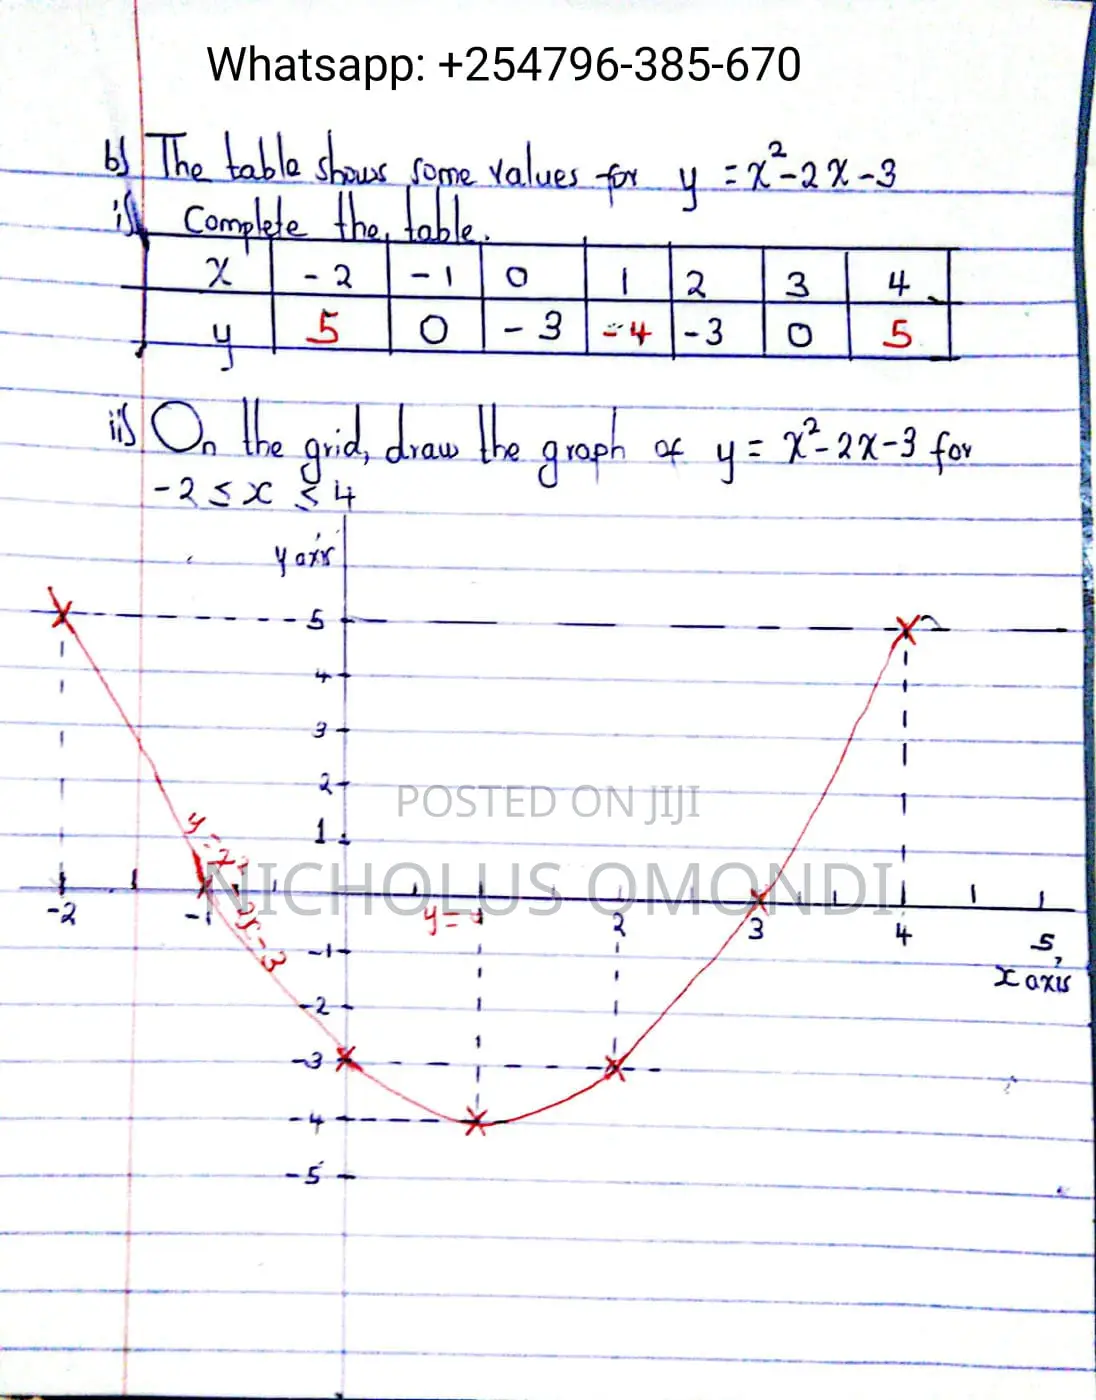 Whatsapp: +254796-385-670
b) The table shows some values for y = x²-2x-3
i) Complete the table.
x -2 -1 0 1 2 3 4
y 5 0 -3 -4 -3 0 5
ii) On the grid, draw the graph of y = x²-2x-3 for
-2 ≤ x ≤ 4
y axis
5
4
3
2
POSTED ON JIJI
1
y = x²-2x-3
NICHOLUS OMONDI
-2 -1 2 3 4 5
y =
x axis
-1
-2
-3
-4
-5